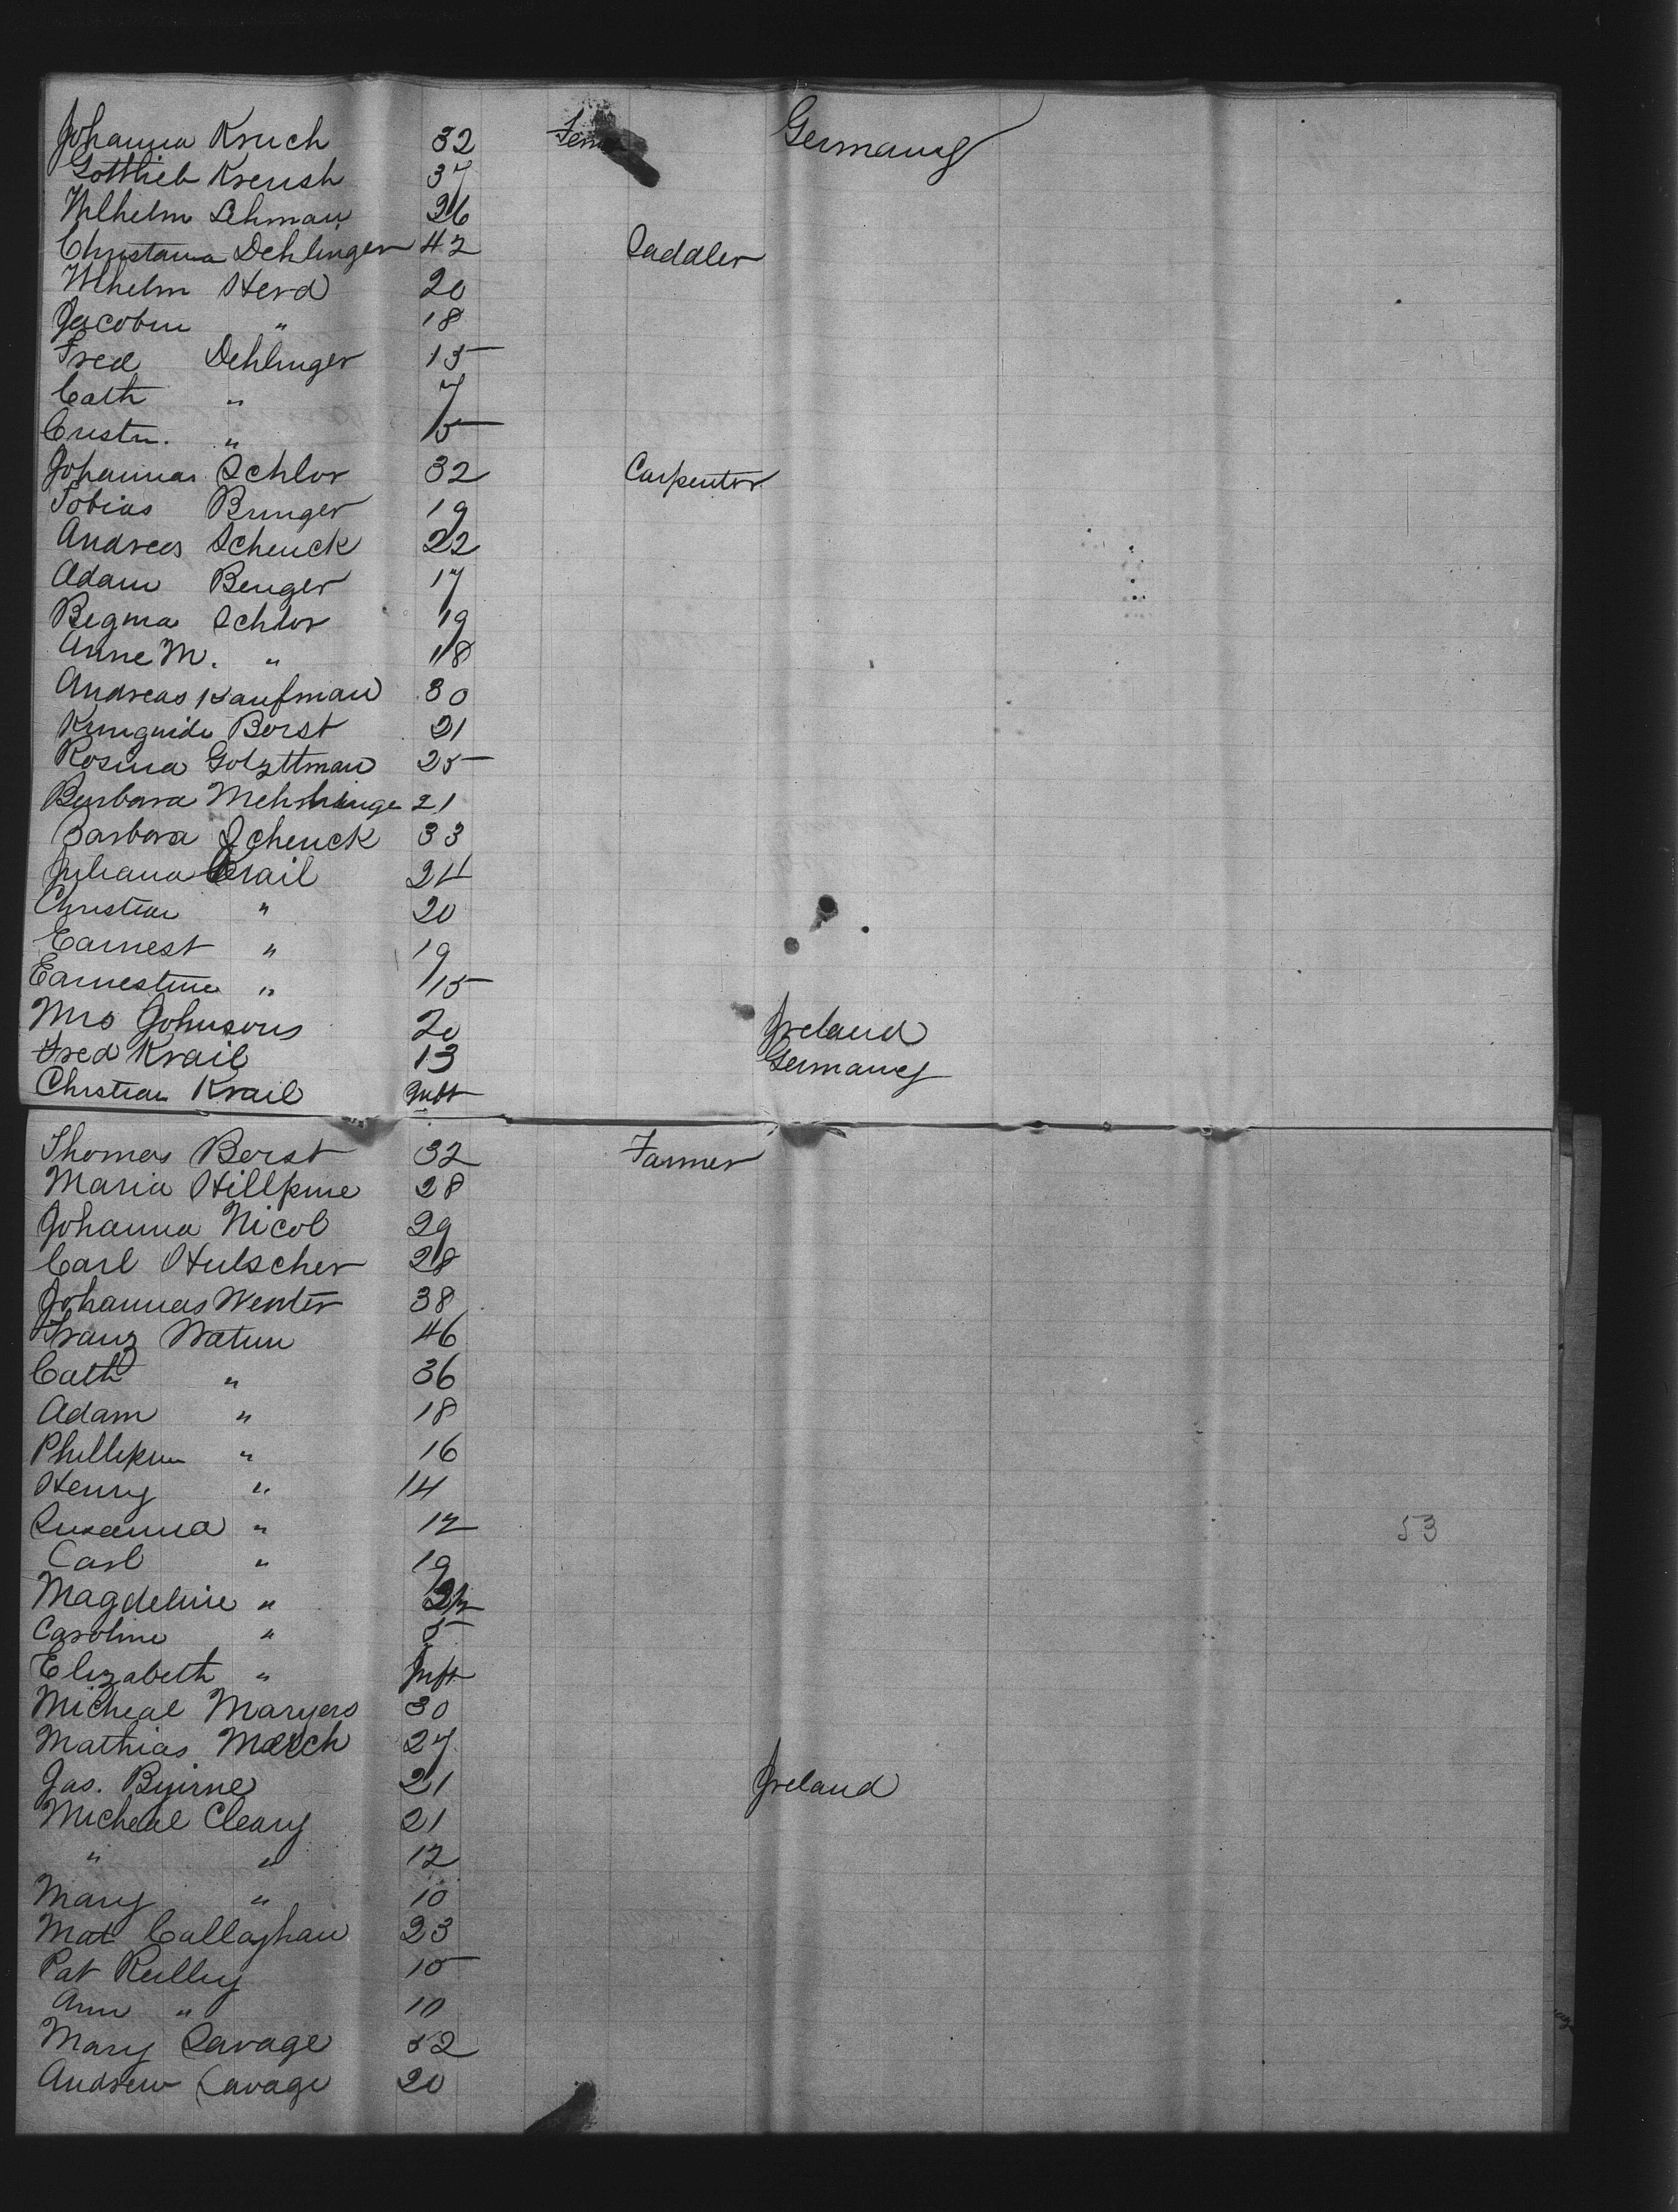 Johanna Kruch 32 Germany
Gottlieb Krensh 37
Wilhelm Lehman 26
Christana Dehlinger 42 Saddler
Wilhelm Herd 20
Jacobin " 18
Fred Dehlinger 15
Cath " 7
Cristn. " 5
Johannas Schlor 32 Carpenter
Tobias Bunger 19
Andrees Schenck 22
Adam Benger 17
Regina Schlor 19
Anne M. " 18
Andreas Kaufman 30
Kunguide Borst 21
Rosina Golzttman 25
Barbara 21
Barbara Schenck 33
Juliana Krail 24
Christian " 20
Earnest " 19
Earnestine " 15
Mrs Johnsons 20 Ireland
Fred Krail 13 Germany
Christian Krail Inft
Thomas Borst 32 Farmer
Maria Hillpine 28
Johanna Nicol 29
Carl Hulscher 28
Johannas Wenter 38
Franz Watun 46
Cath " 36
Adam " 18
Phillipin " 16
Henry " 14
Susanna " 12
Carl " 9
Magdeline "
Caroline " 5
Elizabeth " Inft
Micheal Maryers 30
Mathias March 27
Jas. Byirne 21 Ireland
Micheal Cleary 21
" " 12
Mary " 10
Mat Callaghan 23
Pat Reilley 15
Ann " 10
Mary Savage 52
Andrew Savage 20
53